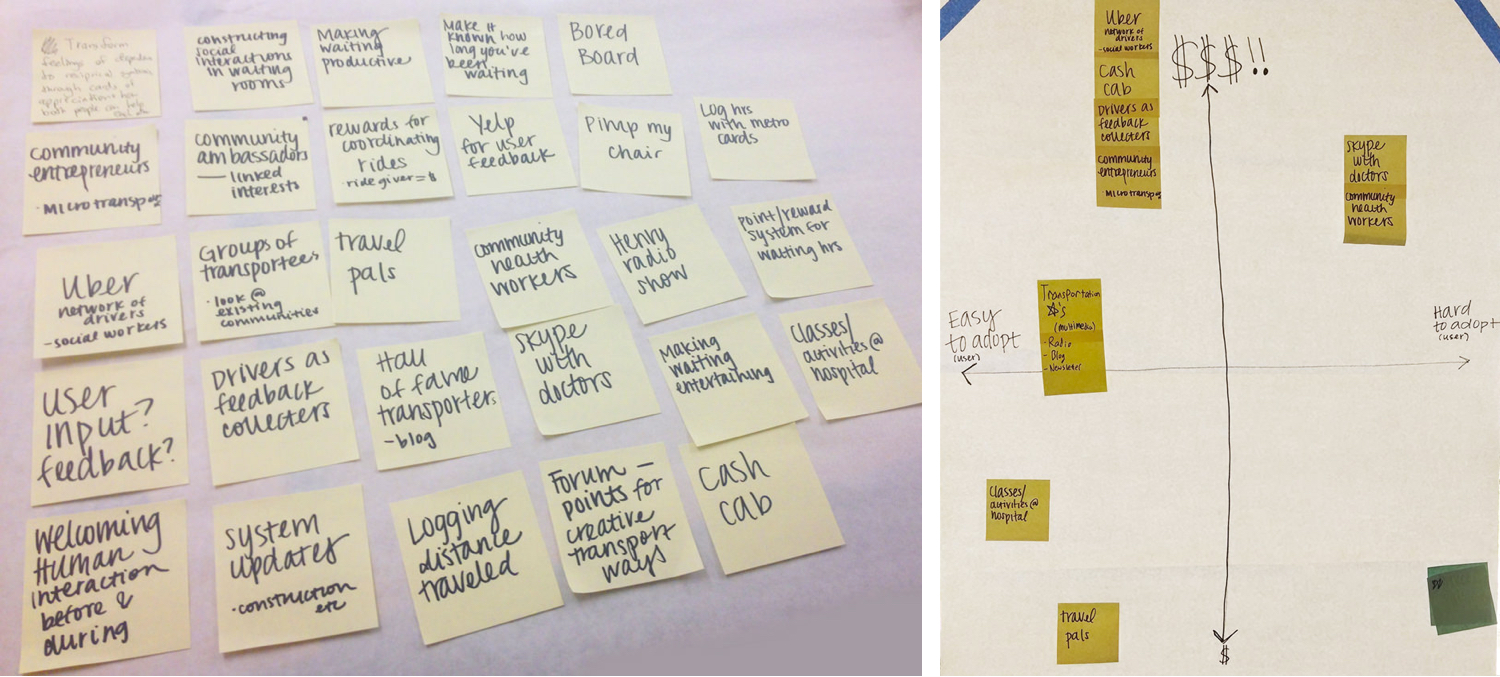 Transform
feelings of depende
to reciprocal systems
through cards of
appreciation how
both people can help
constructing
social
interactions
in waiting
rooms
Making
waiting
productive
Make it
known how
long you've
been
waiting
Bored
Board
community
entrepreneurs
· Microtransp
community
ambassadors
— linked
interests
rewards for
coordinating
rides
· ride giver = $
Yelp
for user
feedback
Pimp my
chair
Log hrs
with metro
cards
Uber
network of
drivers
- social workers
Groups of
transportees
· look @
existing
communities
travel
pals
community
health
workers
Henry
radio
show
point/reward
system for
waiting hrs
user
input?
feedback?
Drivers as
feedback
collecters
Hall
of fame
transporters
- blog
Skype
with
doctors
Making
waiting
entertaining
Classes/
activities @
hospital
Welcoming
Human
interaction
before &
during
system
updates
· construction
etc
Logging
distance
traveled
Forum —
points for
creative
transport
ways
Cash
cab
Uber
network of
drivers
- social workers
Cash
cab
Drivers as
feedback
collecters
community
entrepreneurs
· Microtransp
$$$!!
Skype
with
doctors
community
health
workers
Transportation
's
(multimedia)
· Radio
- Blog
- Newsletter
Easy
to adopt
(user)
Hard
to adopt
(user)
Classes/
activities @
hospital
travel
pals
$